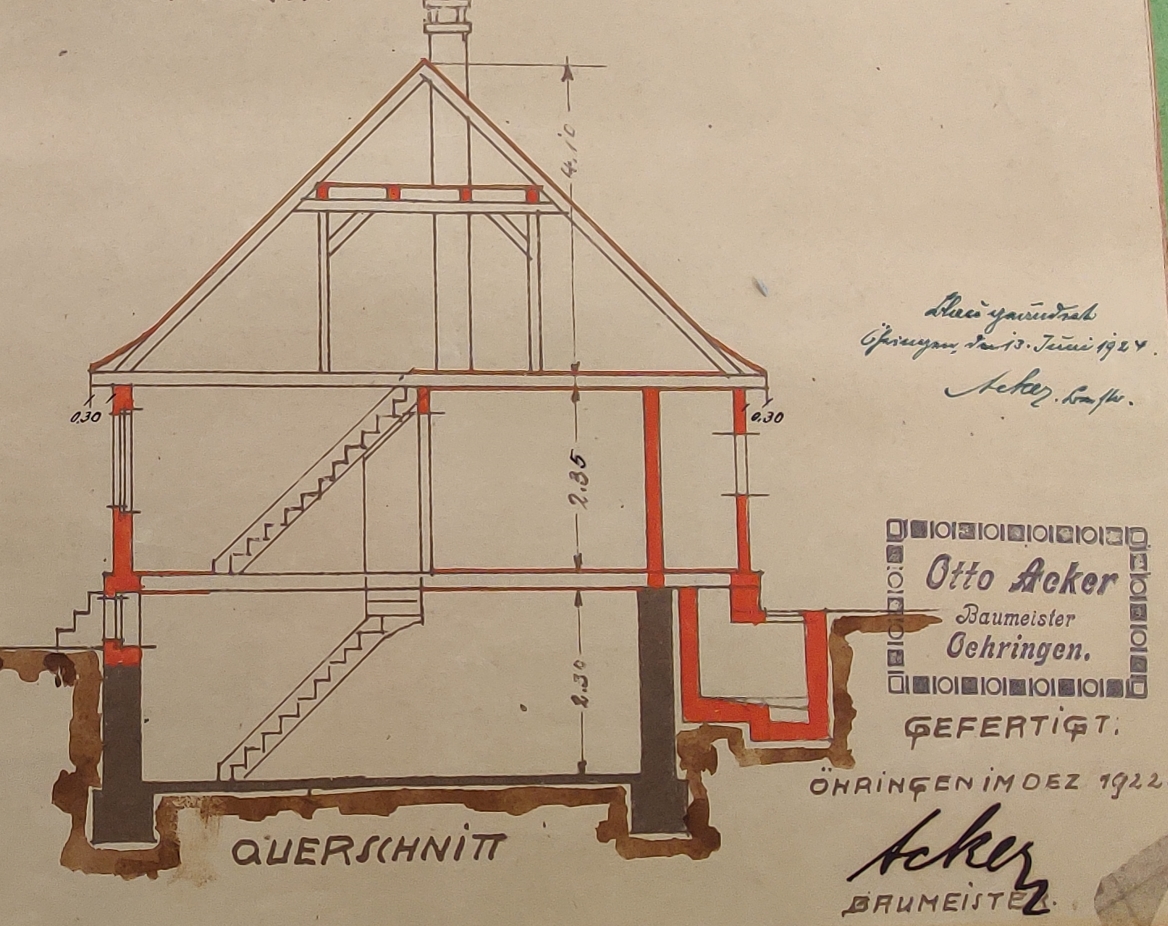 4.10
Blau geändert
Öhringen, den 13. Juni 1924.
Acker.
0,30
0,30
2.85
Otto Acker
Baumeister
Oehringen.
2.30
GEFERTIGT:
ÖHRINGEN IM DEZ 1922
QUERSCHNITT
Acker
BAUMEISTER.